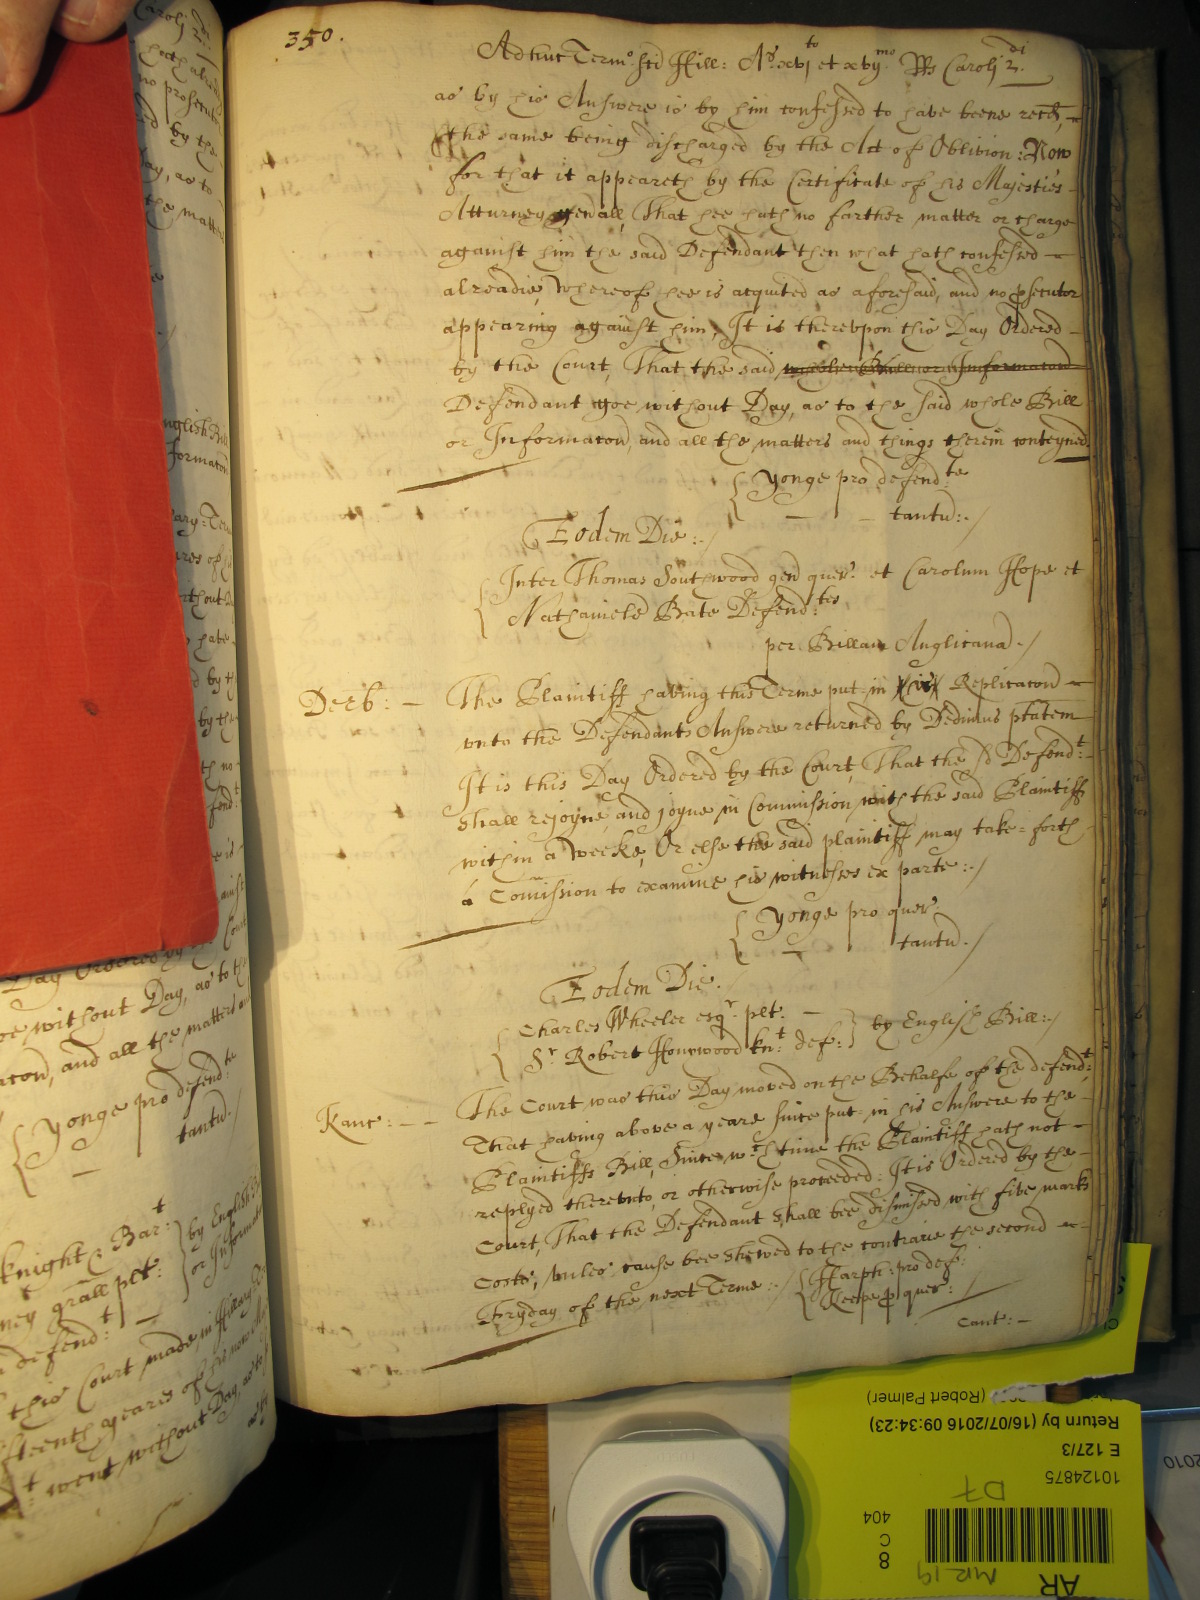 350.
Adhuc Termo. Sci Hill: Ao. xvjto et xvijmo RRs Caroli 2di.
as by his Answere is by him confessed to have beene recd,
the same being discharged by the Act of Oblivion: Now
for that it appeareth by the Certificate of his Majesties
Atturney genall, That hee hath no farther matter or charge
against him the said Defendant then what hath confessed
alreadie, whereof hee is acquited as aforesaid, and no psecutor
appearing against him, It is therevpon this Day Ordered
by the Court, That the said whole Bill or Informacon
Defendant goe without Day, as to the said whole Bill
or Informacon, and all the matters and things therein conteyned
Yonge pro defend:te
tantu:./
Eodem Die:./
Inter Thomas Southwood gen quer: et Carolum Hope et
Nathaniele Bate Defend:tes
per Billam Anglicana./
Derb:- The Plaintiff having this Terme put in his Replicacon
vnto the Defendants Answere returned by Dedimus ptatem
It is this Day Ordered by the Court, That the sd Defendt:
shall rejoyne, and joyne in Commission with the said Plaintiff
within a weeke, Or else the said plaintiff may take forth
a Comission to examine his witnesses ex parte:./
Yonge pro quer.
tantu./
Eodem Die.
Charles Wheeler esqr. plt:
Sr Robert Honywood knt. def:
by English Bill:/
Kanc:- - The Court was this Day moved on the Behalfe of the defendt:
That having above a yeare since put in his Answere to the
Plaintiffs Bill, Since wch time the Plaintiff hath not
replyed therevnto, or otherwise proceeded: It is Ordered by the
Court, That the Defendant shall bee dismissed with five marks
Costs, vnles cause bee shewed to the contrarie the second
Fryday of the next Terme:./
Harph: pro def:
Keepe p quer:
Cant:-
Day Ordered by the Court
goe without Day, as to th
acon, and all the matters an
Yonge pro defend:te
tantu./
knight & Bart:
by English B
ney grall plt:
or Informat
defendt:
this Court made in Hillary
ifteenth yeares of his now
went without Day, as to
Return by (16/07/2016 09:34:23)
(Robert Palmer)
E 127/3
10124875
D7
404
C
8
MR 19
AR